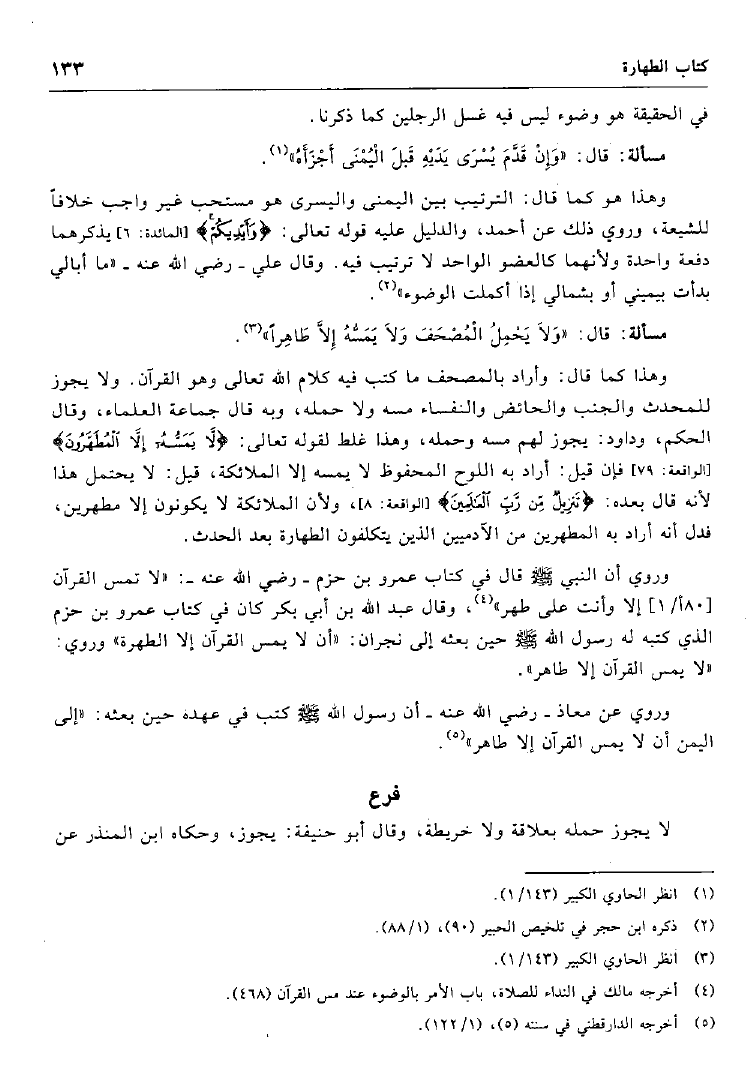 كتاب الطهارة ١٣٣
في الحقيقة هو وضوء ليس فيه غسل الرجلين كما ذكرنا.
مسألة: قال: «وَإِنْ قَدَّمَ يُسْرَى يَدَيْهِ قَبلَ الْيُمْنَى أَجْزَأَهُ»(١).
وهذا هو كما قال: الترتيب بين اليمنى واليسرى هو مستحب غير واجب خلافاً
للشيعة، وروي ذلك عن أحمد، والدليل عليه قوله تعالى: ﴿وَأَيْدِيكُمْ﴾ [المائدة: ٦] يذكرهما
دفعة واحدة ولأنهما كالعضو الواحد لا ترتيب فيه. وقال علي ـ رضي الله عنه ـ «ما أبالي
بدأت بيميني أو بشمالي إذا أكملت الوضوء»(٢).
مسألة: قال: «وَلاَ يَحْمِلُ الْمُصْحَفَ وَلاَ يَمَسُّهُ إِلاَّ طَاهِراً»(٣).
وهذا كما قال: وأراد بالمصحف ما كتب فيه كلام الله تعالى وهو القرآن. ولا يجوز
للمحدث والجنب والحائض والنفساء مسه ولا حمله، وبه قال جماعة العلماء، وقال
الحكم، وداود: يجوز لهم مسه وحمله، وهذا غلط لقوله تعالى: ﴿لَّا يَمَسُّهُۥ إِلَّا الْمُطَهَّرُونَ﴾
[الواقعة: ٧٩] فإن قيل: أراد به اللوح المحفوظ لا يمسه إلا الملائكة، قيل: لا يحتمل هذا
لأنه قال بعده: ﴿تَنزِيلٌ مِّن رَّبِّ الْعَالَمِينَ﴾ [الواقعة: ٨]، ولأن الملائكة لا يكونون إلا مطهرين،
فدل أنه أراد به المطهرين من الآدميين الذين يتكلفون الطهارة بعد الحدث.
وروي أن النبي ﷺ قال في كتاب عمرو بن حزم ـ رضي الله عنه ـ: «لا تمس القرآن
[٨٠أ/ ١] إلا وأنت على طهر»(٤)، وقال عبد الله بن أبي بكر كان في كتاب عمرو بن حزم
الذي كتبه له رسول الله ﷺ حين بعثه إلى نجران: «أن لا يمس القرآن إلا الطهرة» وروي:
«لا يمس القرآن إلا طاهر».
وروي عن معاذ ـ رضي الله عنه ـ أن رسول الله ﷺ كتب في عهده حين بعثه: «إلى
اليمن أن لا يمس القرآن إلا طاهر»(٥).
فرع
لا يجوز حمله بعلاقة ولا خريطة، وقال أبو حنيفة: يجوز، وحكاه ابن المنذر عن
(١) انظر الحاوي الكبير (١/١٤٣).
(٢) ذكره ابن حجر في تلخيص الحبير (٩٠)، (٨٨/١).
(٣) أنظر الحاوي الكبير (١/١٤٣).
(٤) أخرجه مالك في النداء للصلاة، باب الأمر بالوضوء عند مس القرآن (٤٦٨).
(٥) أخرجه الدارقطني في سننه (٥)، (١٢٢/١).